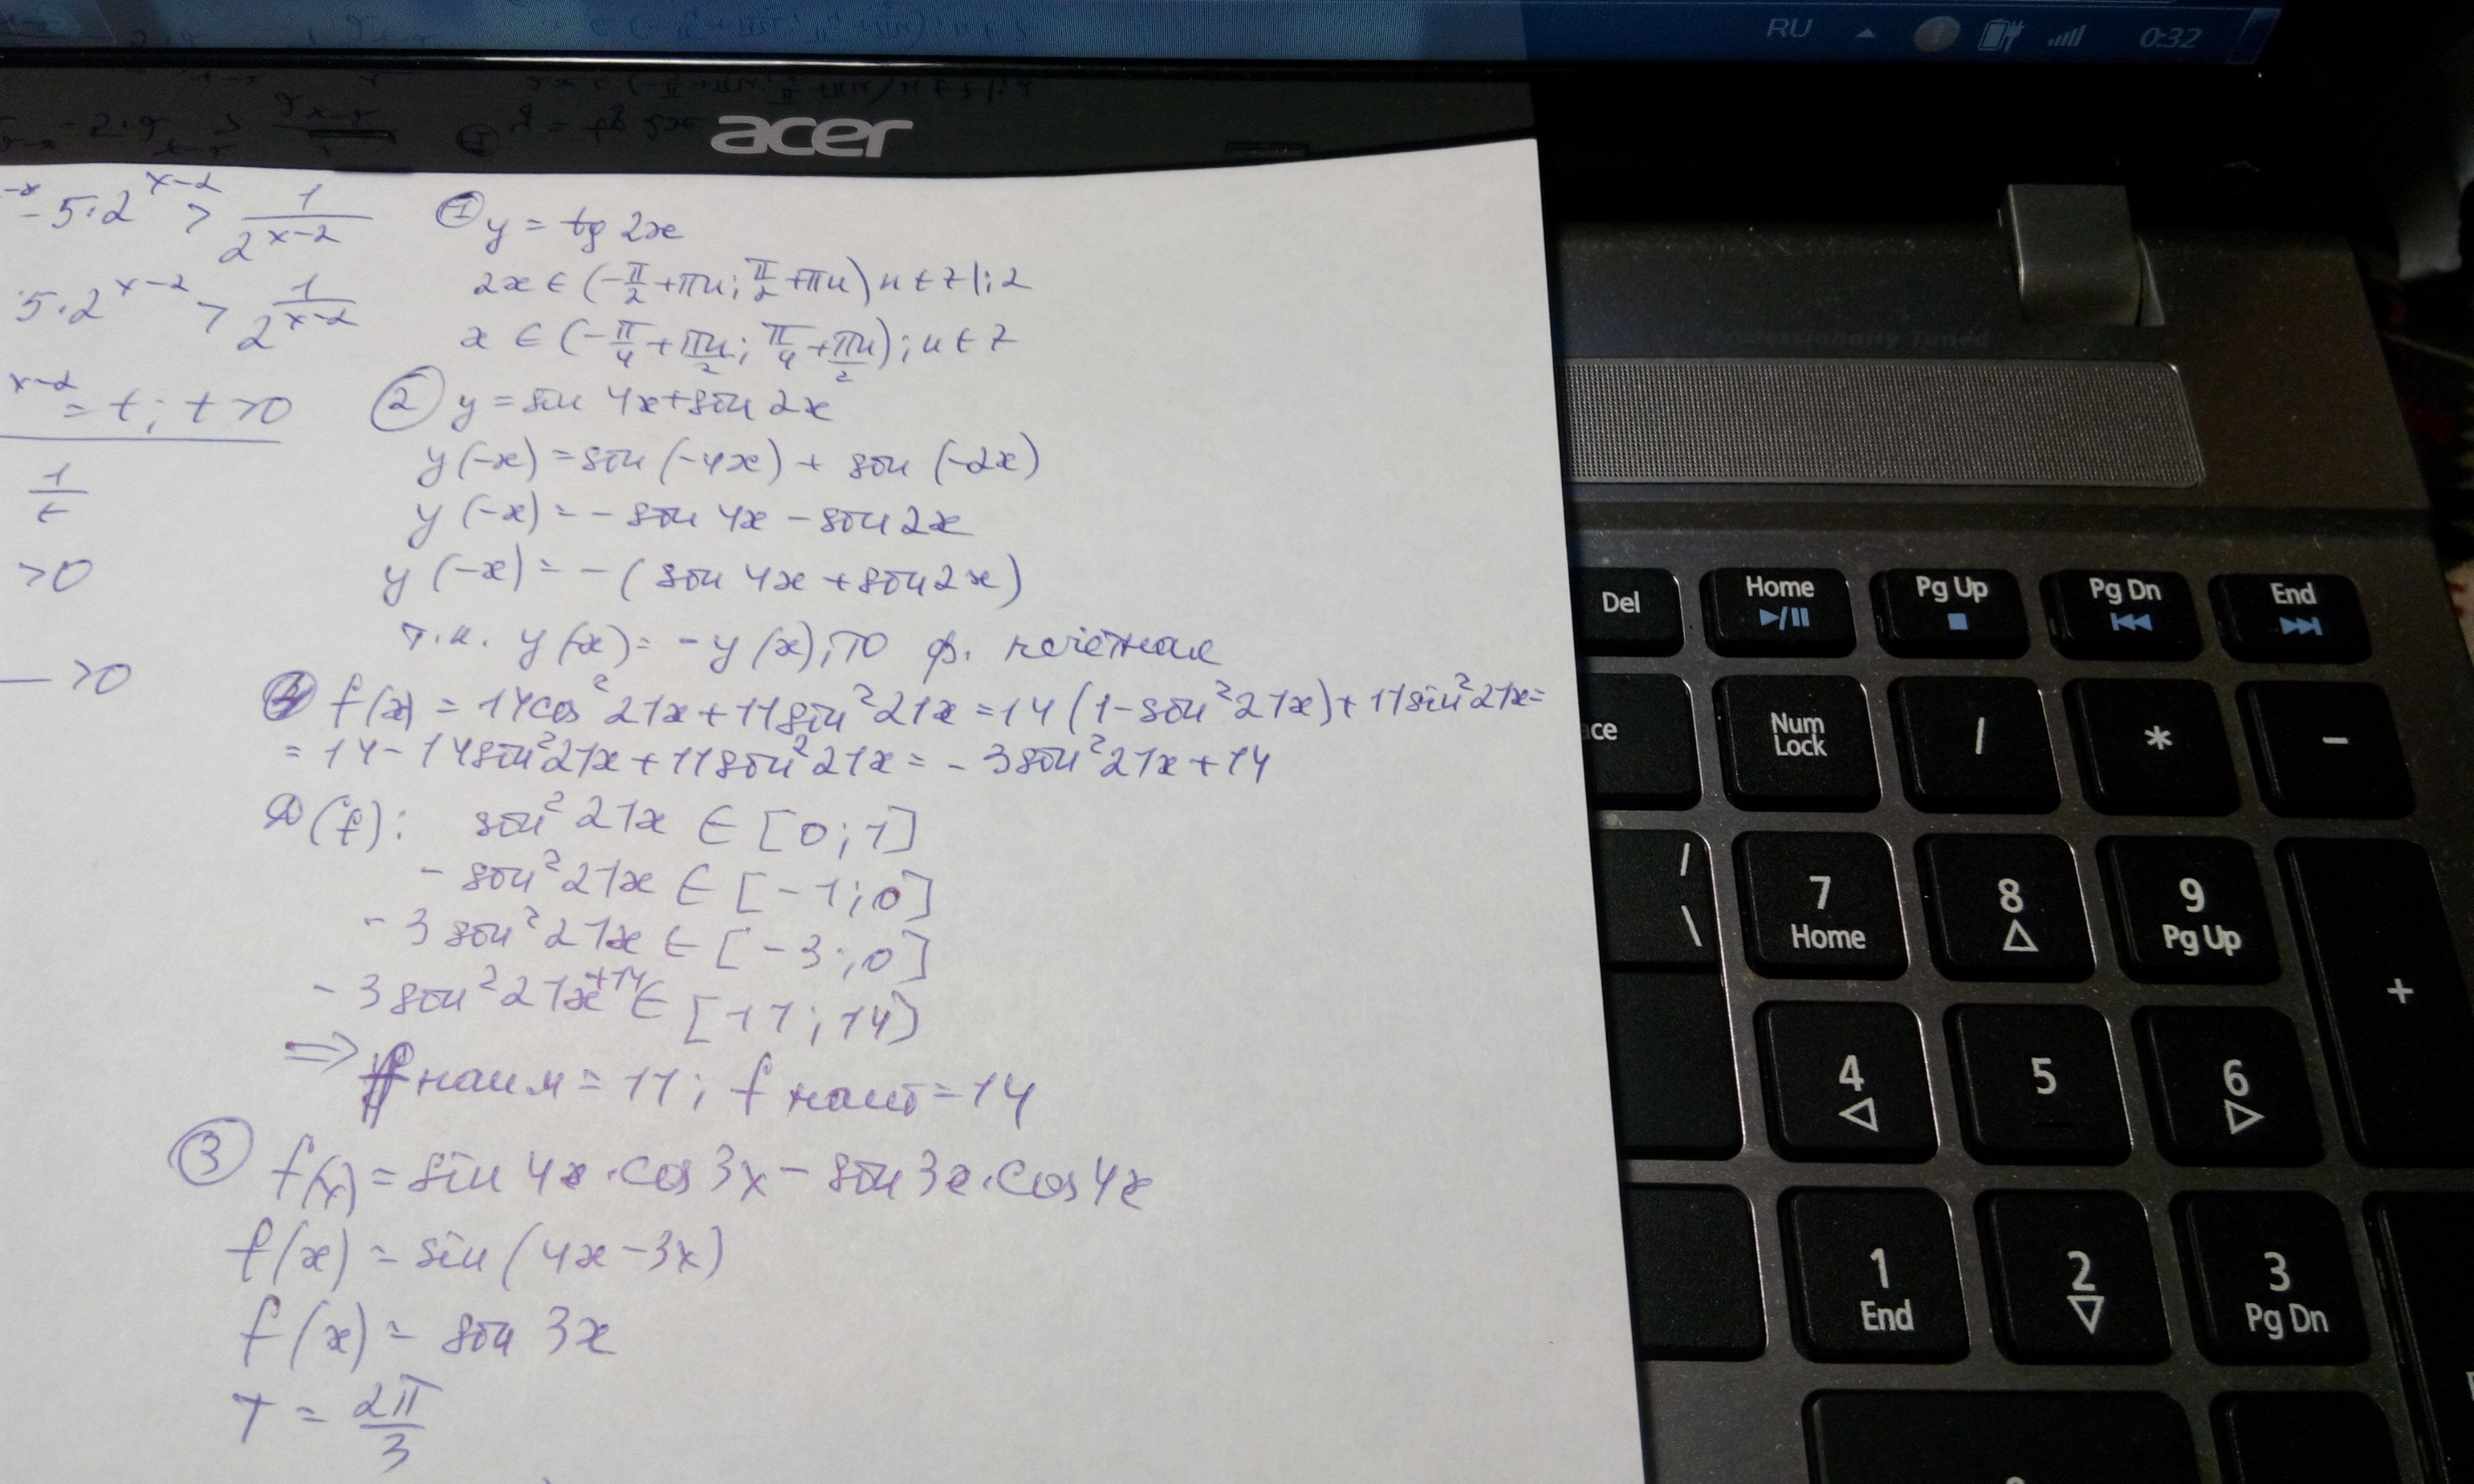 RU 0:32
acer
Professionally Tuned
-x - 5·2^(x-2) > 1/2^(x-2)
5·2^(x-2) > 1/2^(x-2)
x-2 = t; t>0
1/t
>0
>0
① y = tg 2x
2x ∈ (-π/2 + πn; π/2 + πn) n ∈ Z |:2
x ∈ (-π/4 + πn/2; π/4 + πn/2); n ∈ Z
② y = sin 4x + sin 2x
y(-x) = sin (-4x) + sin (-2x)
y(-x) = - sin 4x - sin 2x
y(-x) = - (sin 4x + sin 2x)
т.к. y(-x) = -y(x), то ф. нечётная
f(x) = 14cos²21x + 11sin²21x = 14(1-sin²21x) + 11sin²21x =
= 14 - 14sin²21x + 11sin²21x = -3sin²21x + 14
D(f): sin²21x ∈ [0;1]
- sin²21x ∈ [-1;0]
- 3sin²21x ∈ [-3;0]
- 3sin²21x+14 ∈ [11;14]
⇒ f наим = 11; f наиб = 14
③ f(x) = sin 4x · cos 3x - sin 3x · cos 4x
f(x) = sin (4x - 3x)
f(x) = sin 3x
T = 2π/3
Del
Home
Pg Up
Pg Dn
End
ce
Num Lock
/
*
-
/
\
7 Home
8
9 Pg Up
+
4
5
6
1 End
2
3 Pg Dn